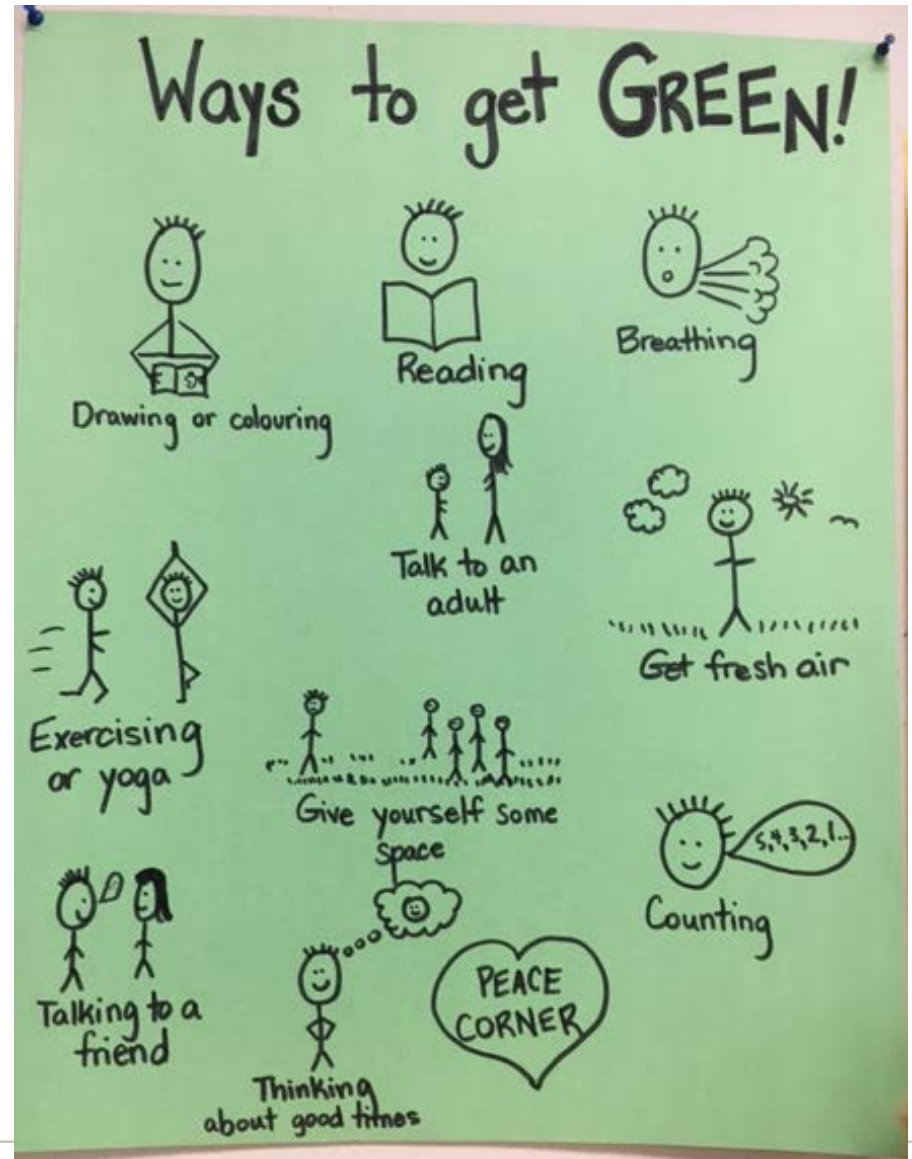 Ways to get GREEN!
Drawing or colouring
Reading
Breathing
Talk to an
adult
Get fresh air
Exercising
or yoga
Give yourself some
space
5,4,3,2,1...
Counting
Talking to a
friend
Thinking
about good times
PEACE
CORNER